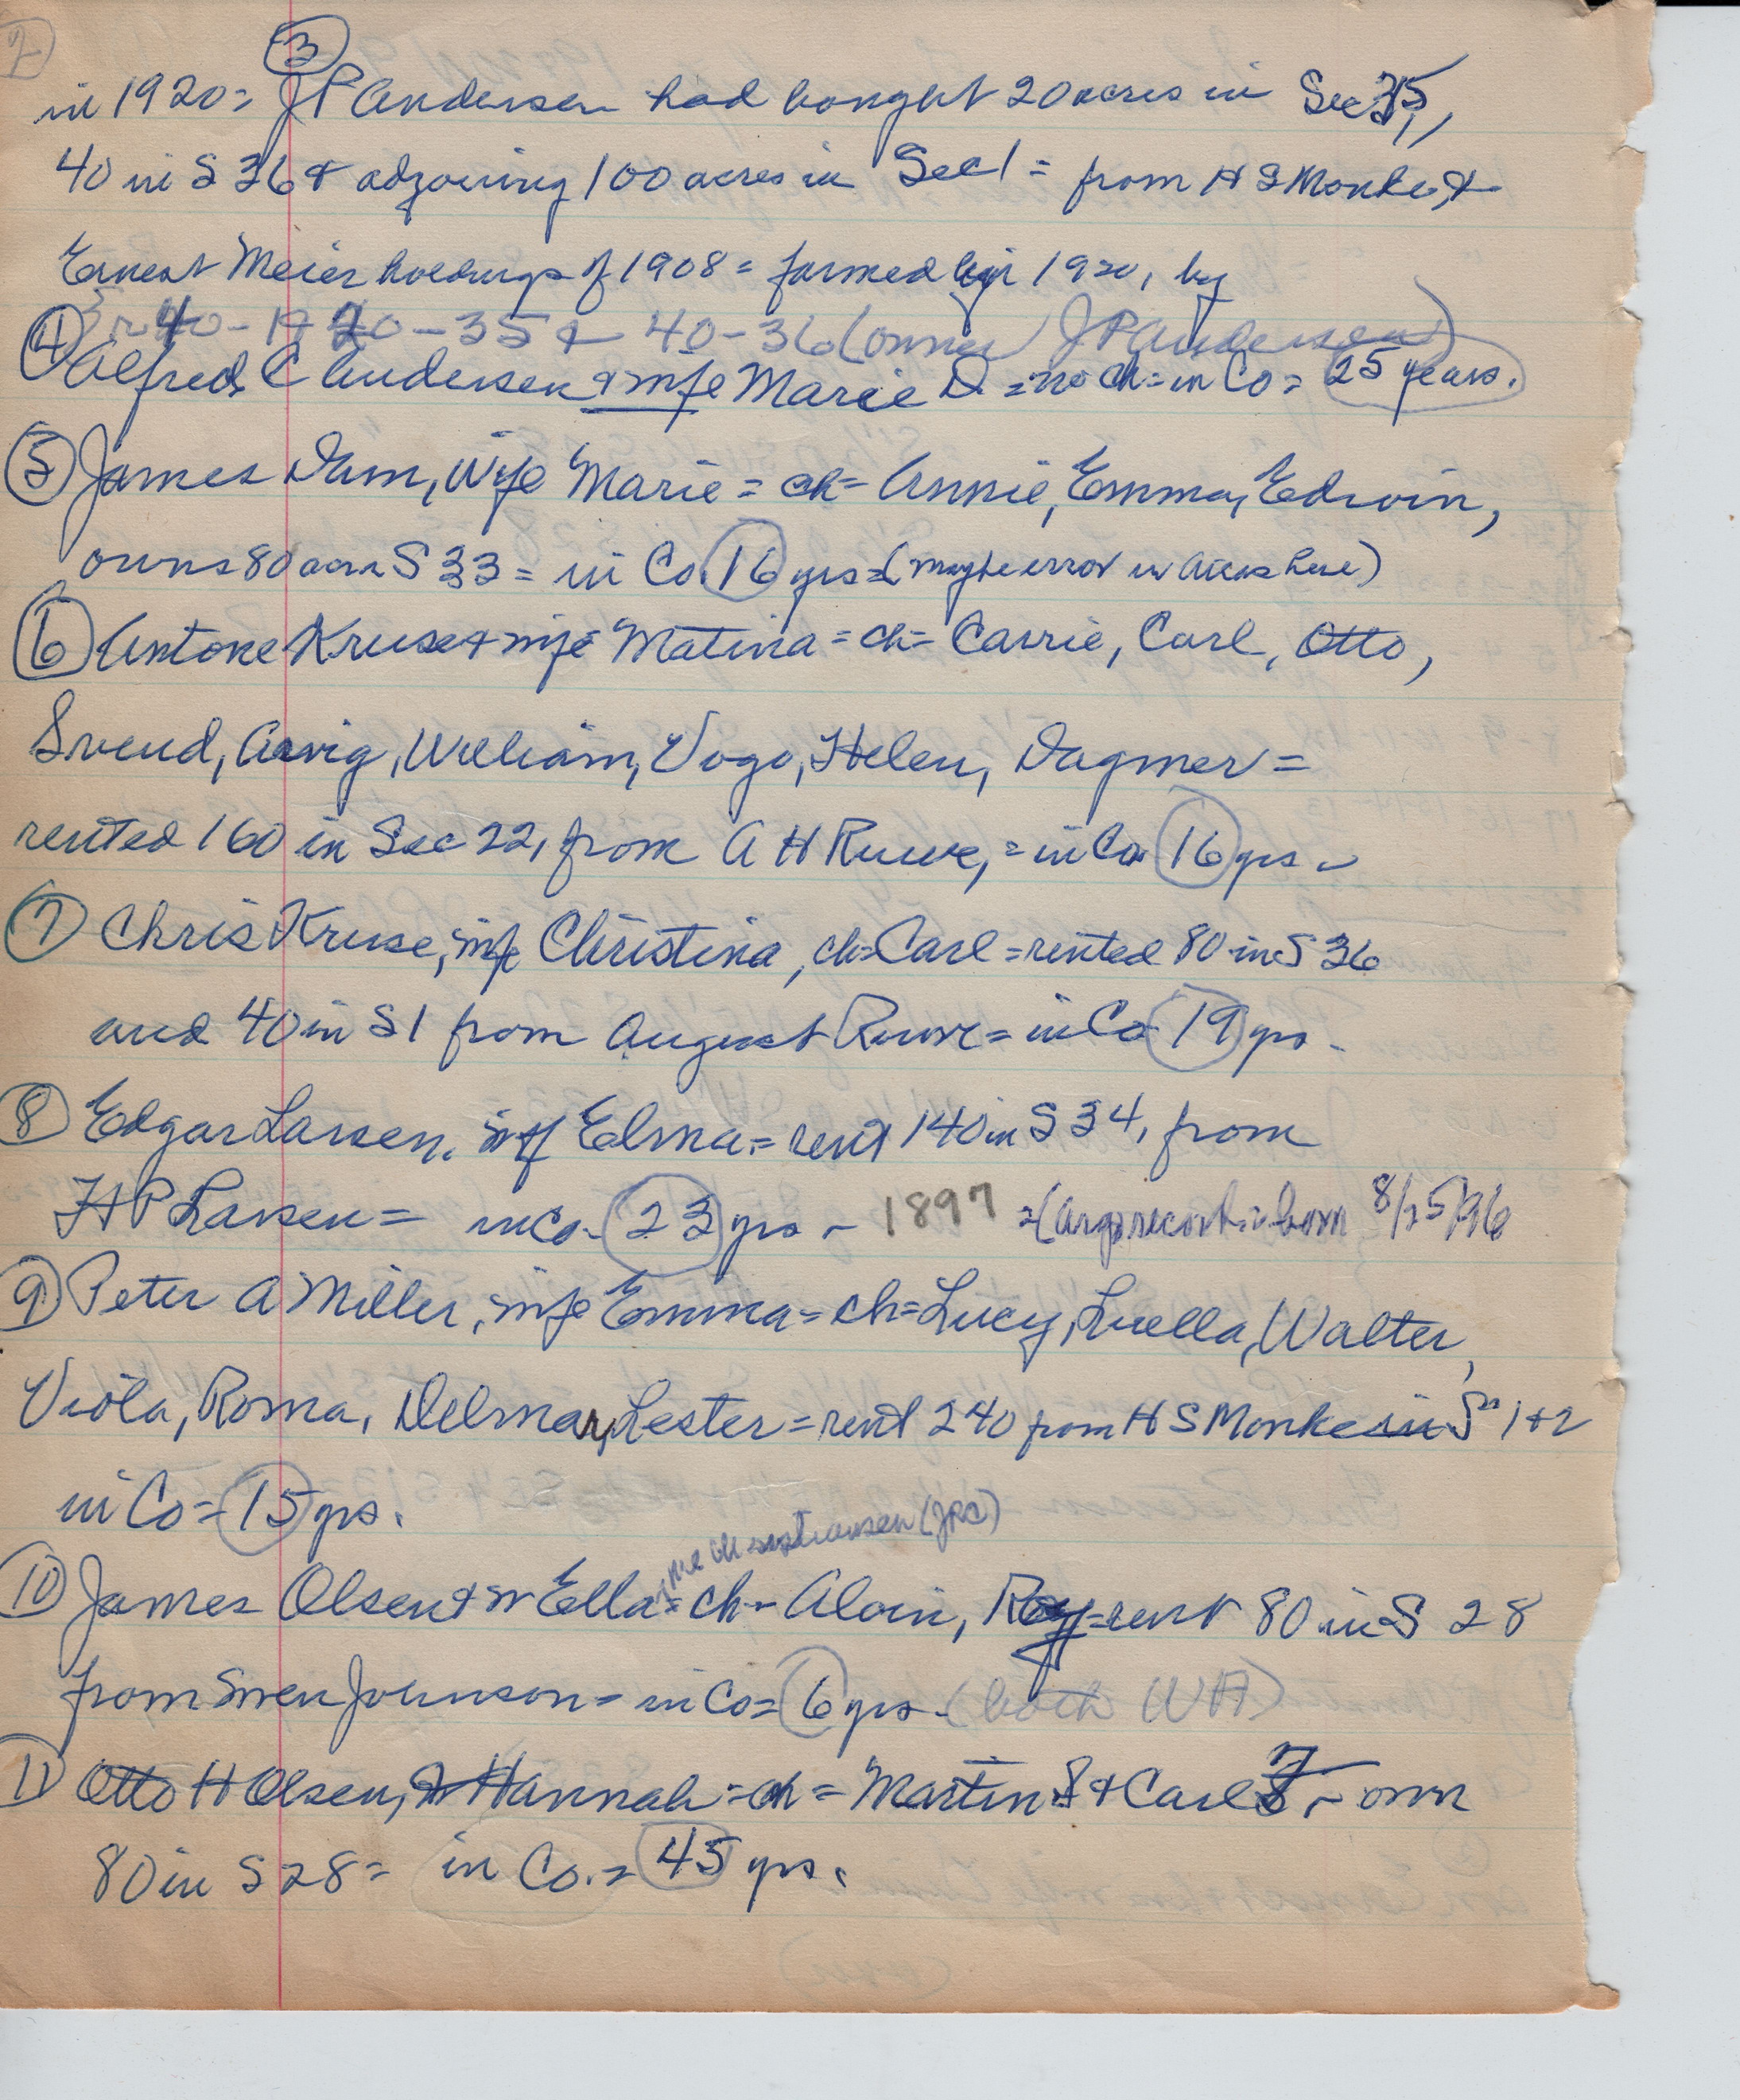 2
③
in 1920 = J P Andersen had bought 20 acres in Sec 35,
40 in S 36 & adjoining 100 acres in Sec 1 = from H S Monke, &
Ernest Meier holdings of 1908 = farmed in 1920, by
40 - 1920 - 35 & 40 - 36 (owner J P Andersen)
④ Alfred C Andersen & wife Marie D. = no ch = in Co = 25 years.
⑤ James Dam, Wife Marie = ch = Annie, Emma, Edwin,
owns 80 acres S 33 = in Co. 16 yrs = (maybe error in acres here)
⑥ Antone Kruse & wife Matina = ch = Carrie, Carl, Otto,
Svend, Arvig, William, Vogo, Helen, Dagmer =
rented 160 in Sec 22, from A H Ruwe, = in Co 16 yrs -
⑦ Chris Kruse, wife Christina, ch = Carl = rented 80 in S 36
and 40 in S 1 from August Ruwe = in Co 19 yrs -
⑧ Edgar Larsen, wf Elma, = rent 140 in S 34, from
H P Larsen = in Co - 23 yrs - 1897 = ( record = born 8/25/96
⑨ Peter A Miller, wife Emma = ch = Lucy, Luella, Walter,
Viola, Roma, Delmar, Lester = rent 240 from H S Monke in S 1 & 2
in Co = 15 yrs.
(JRC)
⑩ James Olsen & w Ella = ch = Alvin, Roy = rent 80 in S 28
from Swen Johnson = in Co = 6 yrs - (both WA)
⑪ Otto H Olsen, W Hannah = ch = Martin S & Carl F, - own
80 in S 28 = in Co. = 45 yrs.